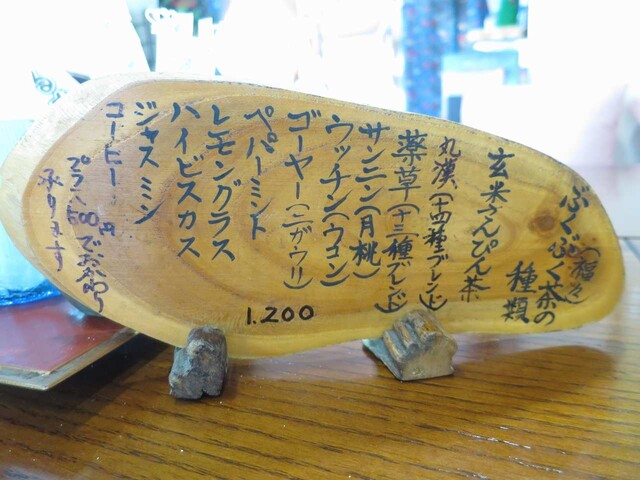 ぶくぶく茶の
(福々)
種類
玄米さんぴん茶
丸漢(十四種ブレンド)
薬草(十三種ブレンド)
サンニン(月桃)
ウッチン(ウコン)
ゴーヤー(ニガウリ)
ペパーミント
レモングラス
ハイビスカス
ジャスミン
コーヒー
1.200
プラス500円でおかわり
承ります